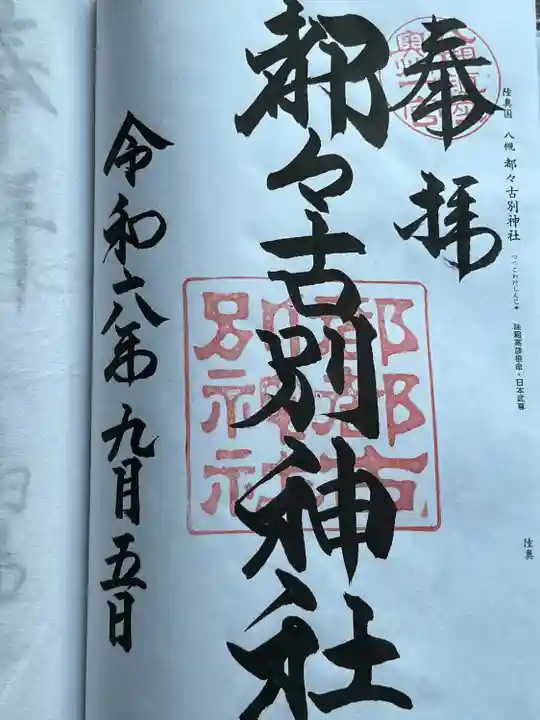 陸奥国 八槻 都々古別神社 つつこわけじんじゃ 味耜高彦根命・日本武尊
陸奥
奉拝
都々古別神社
令和六年九月五日